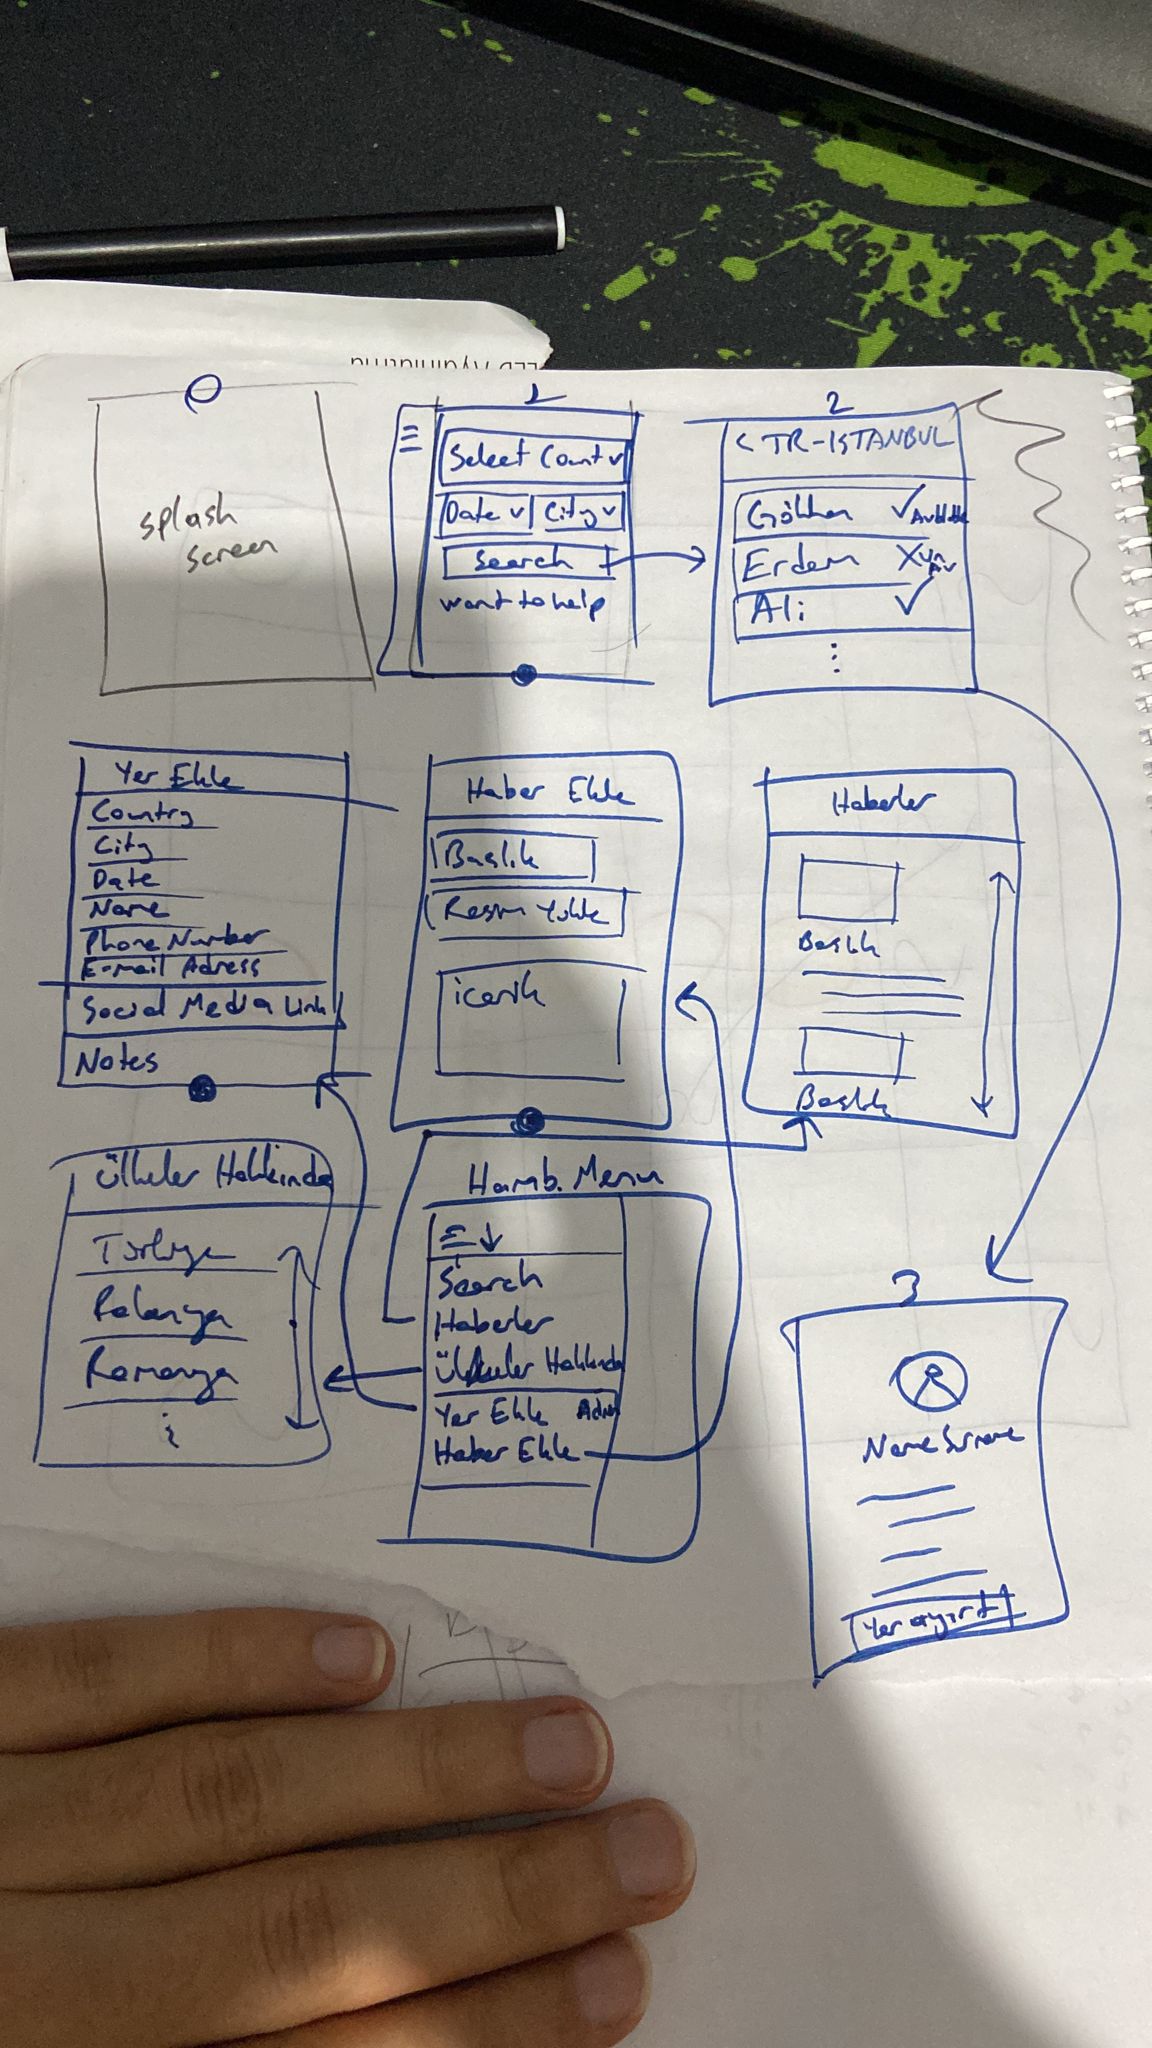 0
splash
screen
1
Select Count
Date
City
Search
want to help
2
< TR-ISTANBUL
Gökhan
Erdem
Ali
Yer Ekle
Country
City
Date
Name
Phone Number
E-mail Adress
Social Media Link
Notes
Haber Ekle
Baslık
Resim Yükle
icerik
Haberler
Baslık
Baslık
Ülkeler Hakkında
Türkiye
Polonya
Romanya
Hamb. Menu
Search
Haberler
Ülkeler Hakkında
Yer Ekle Admin
Haber Ekle
3
Name Surname
Yer ayırt